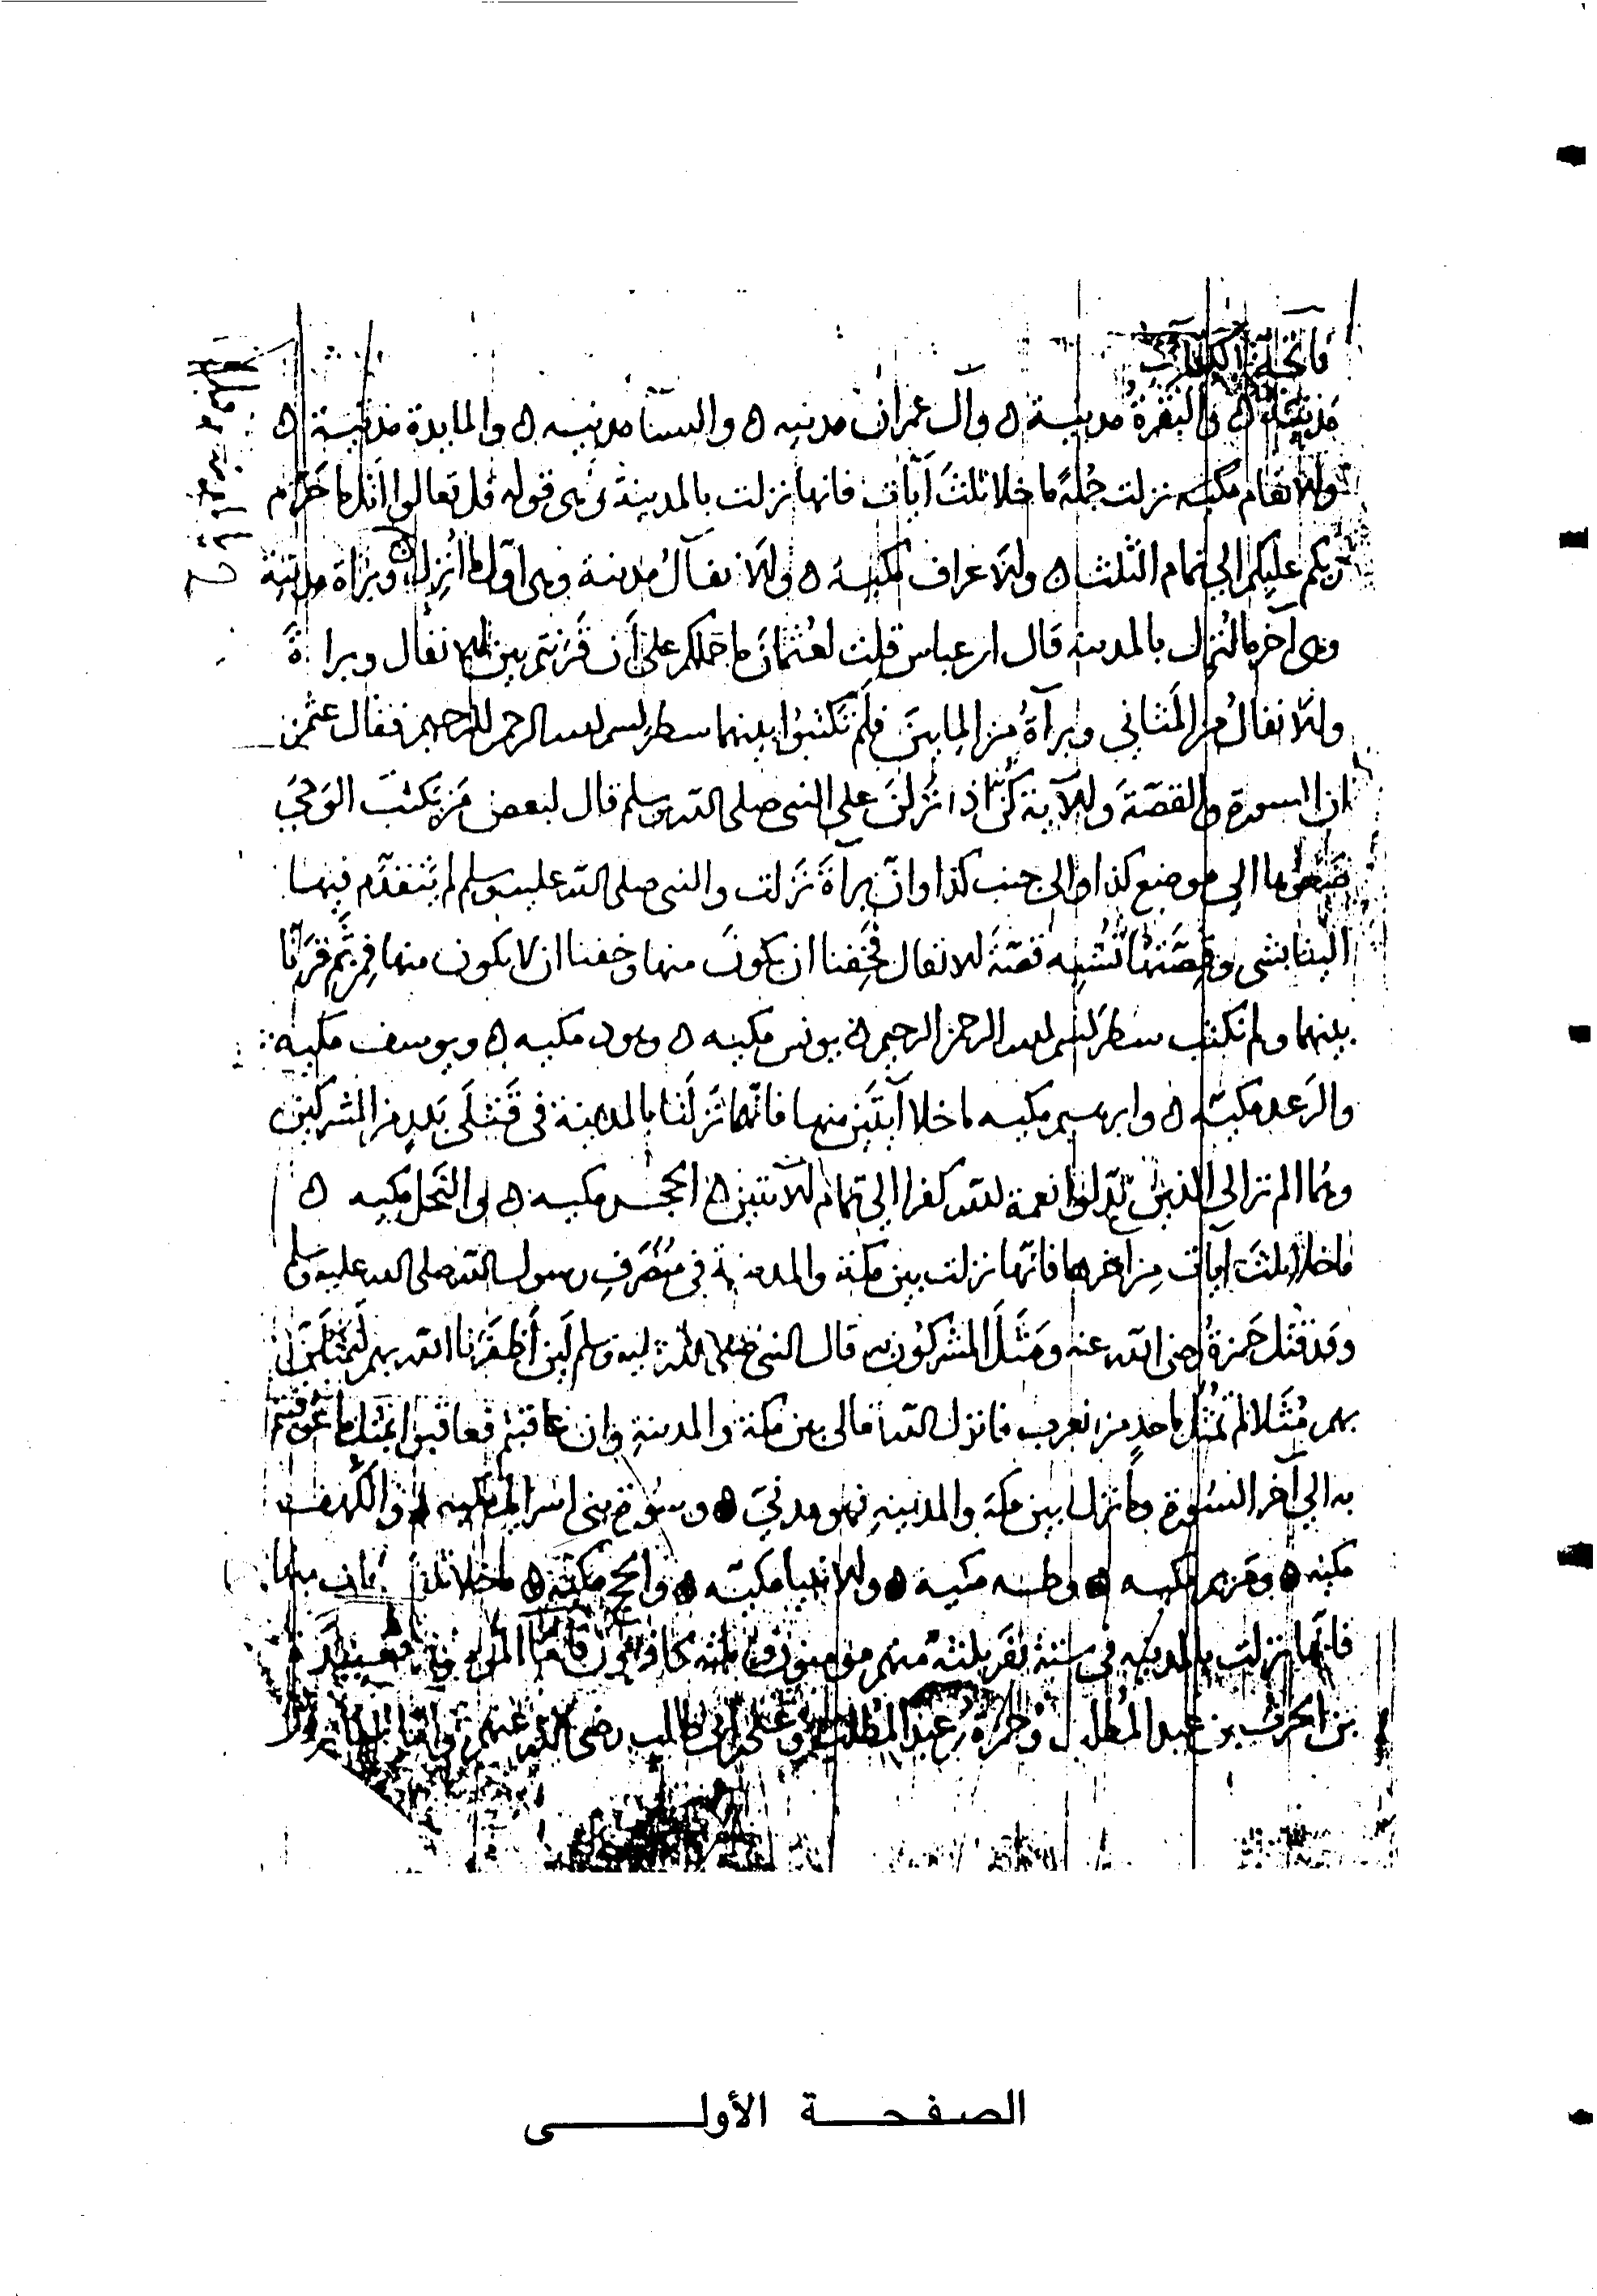 فاتحة الكتاب
مدنية ه والبقرة مدنية ه وآل عمران مدنيه ه والنسا مدنيه ه والمايدة مدنية ه
والانعام مكيه نزلت جُملةً ما خلا ثلثَ آيات فانها نزلت بالمدينة وهى قوله قل تعالوا اتل ما حَرّم
ربكم عليكم الي تمام الثلث ه والاعراف مكية ه والانفالُ مدنية وهى اول ما اُنزل ه وبراة مدنية
وهى آخر ما اُنزل بالمدينه قال ابن عباس قلت لعُثمانَ ما حَملكم على اَن قَرنتم بين الانفال وبراةَ
والانفالُ من المَثاني وبرآةُ من المايين فلَم تكتبُوا بينهما سطر بسم الله الرحمن الرحيم فقال عثمن
ان السورة والقصّةَ والآية كُنّ اذا نَزلنَ علي النبى صلى الله وسلم قال لبعض مَن يَكتب الوَحيَ
ضَعُوها الي موضع كذا والي جنب كذا وانّ برآةَ نَزلت والنبى صلى الله عليه وسلم لم يَتقدّم فيها
الينا بشى وقِصَّتها تُشبه قصّةَ الانفال فَخِفنا ان يكونَ منها وخفنا ان لا يكون منها فمِن ثَمّ قرَنّا
بينهما ولم نكتب سطرَ بسم الله الرحمن الرحيم ه يونس مكيه ه وهود مكيه ه ويوسف مكيه
والرَعد مكيّه ه وابرهيم مكيه ما خلا آيتَين منها فانّهما نَزلَتا بالمدينة فى قَتلَى بَدرٍ من المشركين
وهُما الم تر الي الذين بَدّلوا نعمة الله كفرا الي تمام الآيتين ه الحجر مكيه ه والنَحل مكيه ه
ما خلا ثلثَ آيات مِن آخرها فانّها نزلت بين مكة والمدينة في مُنصَرَفِ رسول الله صلى الله عليه وسلم
وقد قُتل حَمزةُ رضى الله عنه ومَثَّلَ المشركُون به قال النبى صلى الله عليه وسلم لَئِن اَظفَرنا الله بهم لنُمثلنّ
بهم مُثَلا لم تُمثَّل باحدٍ من العرب فانزل الله تعالى بين مكة والمدينةِ وان عاقبتم فعاقبوا بمثل ما عُوقبتم
به الي آخر السُورة وما نزل بين مكة والمدينه فهو مدنيّ ه وسُورة بنى اسرايل مكيه ه والكَهف
مكيه ه ومَريم مكيه ه وطه مكيه ه والانبيا مكيّه ه والحج مكيّة ه ما خلا ثلثَ آيات منها
فانّها نزلت بالمدينه في ستة نفَر ثلثة منهم مومنون وثلثه كافرون فامّا المومنون فعُبَيدَةُ
بن الحرث بن عبد المطلب وحمزةُ بن عبد المُطلب وعلي بن ابى طالب رضى الله عنهم
الصفحة الأولى